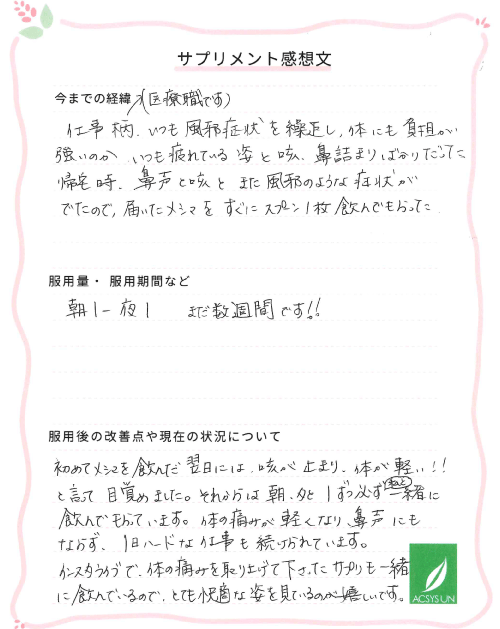 サプリメント感想文
今までの経緯 (医療職です)
仕事柄、いつも風邪症状を繰返し、体にも負担が
強いのか いつも疲れている姿と咳、鼻詰まりばかりだった
帰宅時、鼻声と咳と また風邪のような症状が
でたので、届いたメシマを すぐに スプーン1杯飲んでもらった
服用量・ 服用期間など
朝1－夜1 まだ数週間です!!
服用後の改善点や現在の状況について
初めてメシマを飲んだ翌日には、咳が止まり、体が軽い!!
と言って 目覚めました。それからは 朝、夕と 1ずつ必ず 一緒に
飲んでもらっています。体の痛みが 軽くなり 鼻声にも
ならず、1日ハードな仕事も続けられています。
インスタライブで、体の痛みを取り上げて下さった サプリも一緒
に飲んでいるので、とても快適な姿を見ているのが嬉しいです。
ACSYSUN